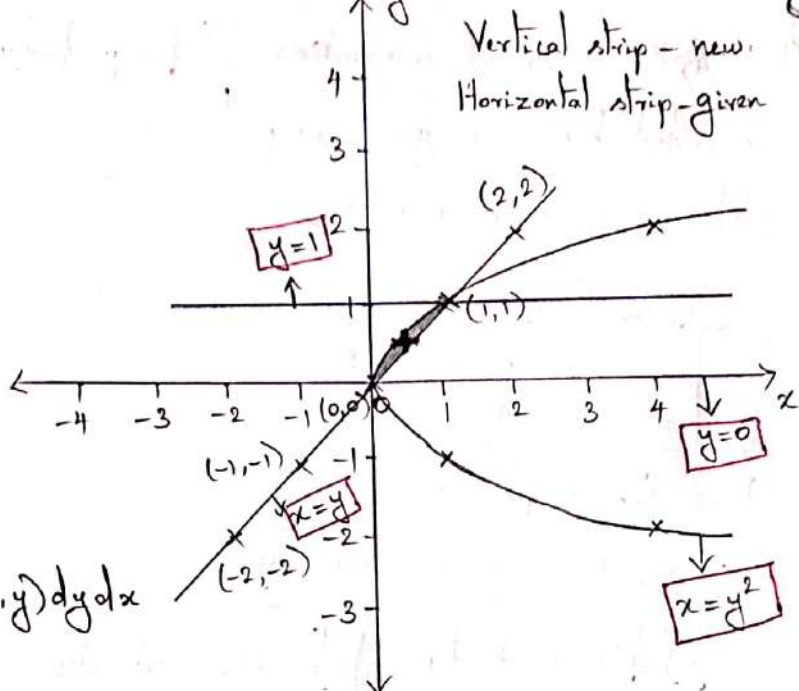 y
Vertical strip - new.
Horizontal strip - given
4
3
(2,2)
2
y=1
1
(1,1)
-4 -3 -2 -1 (0,0) O 1 2 3 4 x
y=0
(-1,-1)
-1
x=y
-2
(-2,-2)
x=y²
,y)dydx
-3